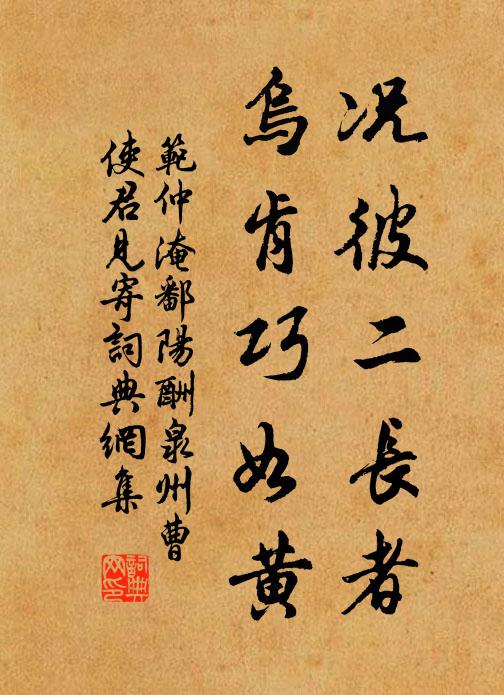 况彼二長者
烏肯巧如黄
範仲淹鄱陽酬泉州曹
使君見寄詞典網集
詞典
网印